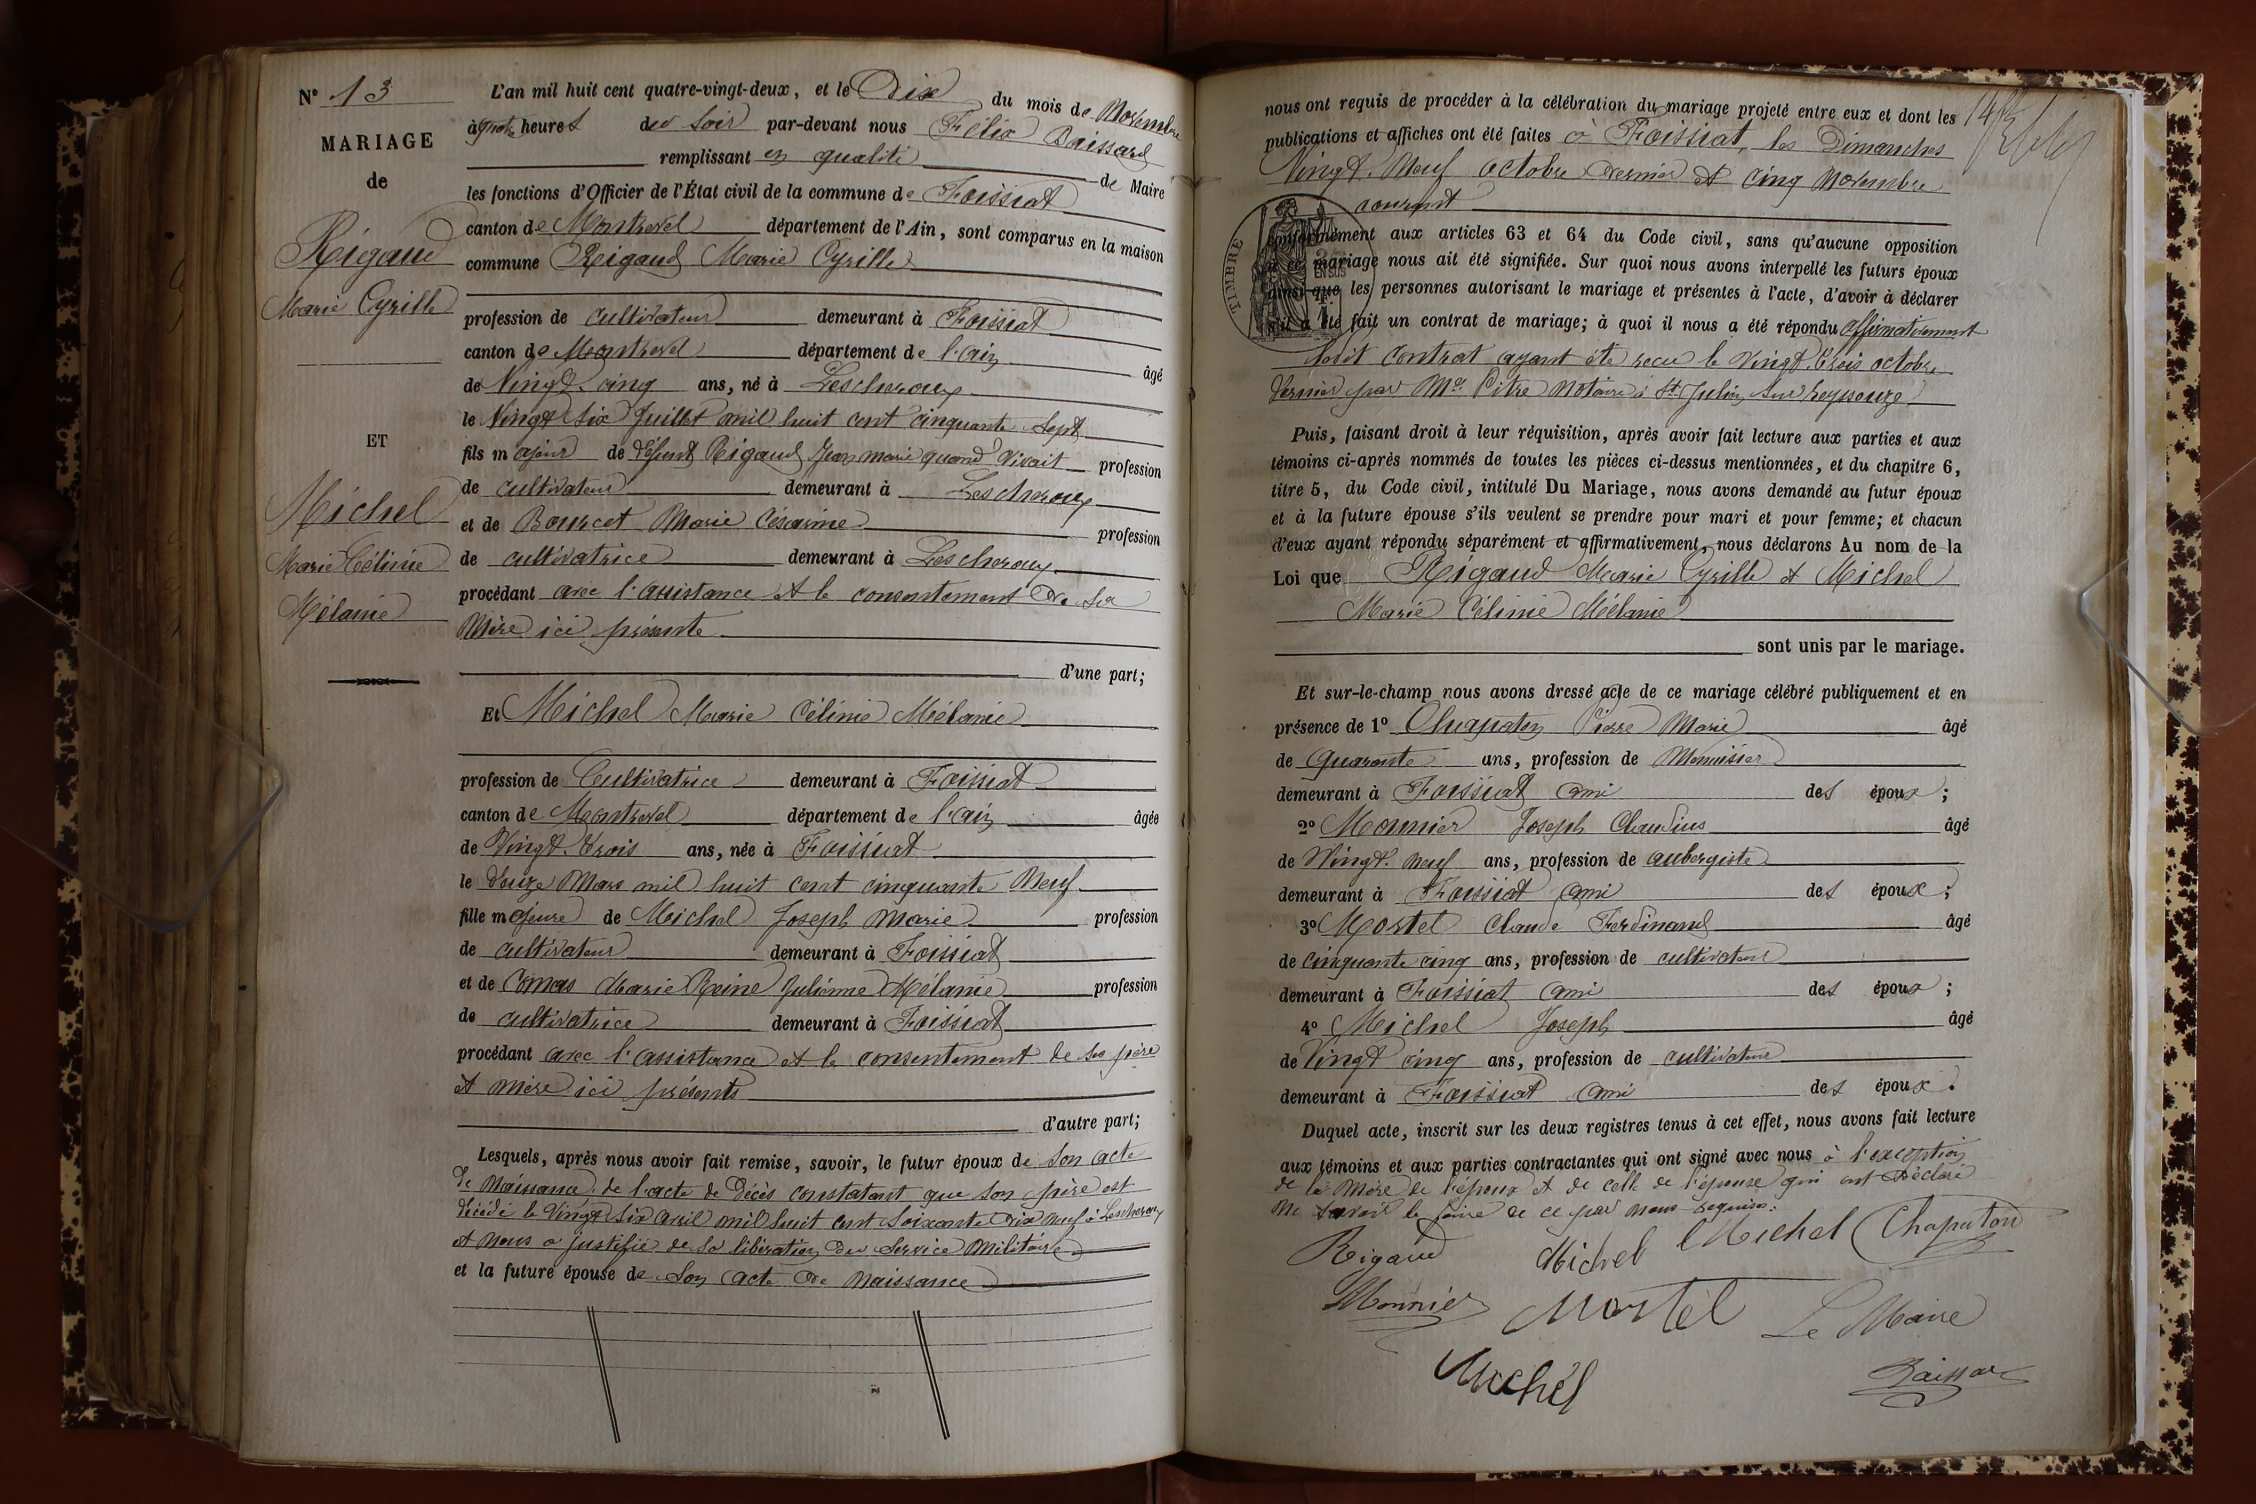 N° 13
MARIAGE
de
Rigaud
Marie Cyrille
ET
Michel
Marie Célinie
Mélanie
L'an mil huit cent quatre-vingt-deux, et le Dix du mois de Novembre
à quatre heures du Soir par-devant nous Félix Baissard
remplissant en qualité de Maire
les fonctions d'Officier de l'État civil de la commune de Foissiat
canton de Montrevel département de l'Ain, sont comparus en la maison
commune Rigaud Marie Cyrille
profession de cultivateur demeurant à Foissiat
canton de Montrevel département de l'ain âgé
de Vingt-cinq ans, né à Lescheroux
le Vingt Six Juillet mil huit cent cinquante-Sept
fils majeur de défunt Rigaud Jean marie quand Vivait profession
de cultivateur demeurant à Lescheroux
et de Bourcet Marie Césarine profession
de cultivatrice demeurant à Lescheroux
procédant avec l'assistance et le consentement de Sa
Mère ici présente
d'une part;
Et Michel Marie Célinie Mélanie
profession de Cultivatrice demeurant à Foissiat
canton de Montrevel département de l'ain âgée
de Vingt-trois ans, née à Foissiat
le douze Mars mil huit cent cinquante Neuf
fille majeure de Michel Joseph Marie profession
de cultivateur demeurant à Foissiat
et de Comas Marie Reine Julienne Mélanie profession
de cultivatrice demeurant à Foissiat
procédant avec l'assistance et le consentement de Ses père
et mère ici présents
d'autre part;
Lesquels, après nous avoir fait remise, savoir, le futur époux de Son acte
de Naissance, de l'acte de Décès constatant que Son père est
décédé le Vingt Six avril mil huit cent Soixante Dix Neuf à Lescheroux
et Nous a justifié de Sa libération du Service Militaire
et la future épouse de Son acte de Naissance
nous ont requis de procéder à la célébration du mariage projeté entre eux et dont les
publications et affiches ont été faites à Foissiat, les Dimanches
Vingt-Neuf octobre Dernier et cinq Novembre
courant
TIMBRE
EN SUS
conformément aux articles 63 et 64 du Code civil, sans qu'aucune opposition
à ce mariage nous ait été signifiée. Sur quoi nous avons interpellé les futurs époux
ainsi que les personnes autorisant le mariage et présentes à l'acte, d'avoir à déclarer
s'il a été fait un contrat de mariage; à quoi il nous a été répondu affirmativement
ledit contrat ayant été reçu le Vingt-trois octobre
dernier par Me Pitre Notaire à St Julien Sur Reyssouze
Puis, faisant droit à leur réquisition, après avoir fait lecture aux parties et aux
témoins ci-après nommés de toutes les pièces ci-dessus mentionnées, et du chapitre 6,
titre 5, du Code civil, intitulé Du Mariage, nous avons demandé au futur époux
et à la future épouse s'ils veulent se prendre pour mari et pour femme; et chacun
d'eux ayant répondu séparément et affirmativement, nous déclarons Au nom de la
Loi que Rigaud Marie Cyrille et Michel
Marie Célinie Mélanie
sont unis par le mariage.
Et sur-le-champ nous avons dressé acte de ce mariage célébré publiquement et en
présence de 1° Chapaton Pierre Marie âgé
de Quarante ans, profession de Menuisier
demeurant à Foissiat ami des époux;
2° Monnier Joseph Claudius âgé
de Vingt-neuf ans, profession de aubergiste
demeurant à Foissiat ami des époux;
3° Mortel Claude Ferdinand âgé
de cinquante cinq ans, profession de cultivateur
demeurant à Foissiat ami des époux;
4° Michel Joseph âgé
de Vingt cinq ans, profession de cultivateur
demeurant à Foissiat ami des époux.
Duquel acte, inscrit sur les deux registres tenus à cet effet, nous avons fait lecture
aux témoins et aux parties contractantes qui ont signé avec nous à l'exception
de la Mère de l'époux et de celle de l'épouse qui ont Déclaré
ne Savoir le faire de ce par nous requises.
Rigaud Michel Michel Chapaton
Monnier Mortel Le Maire
Michel Baissard